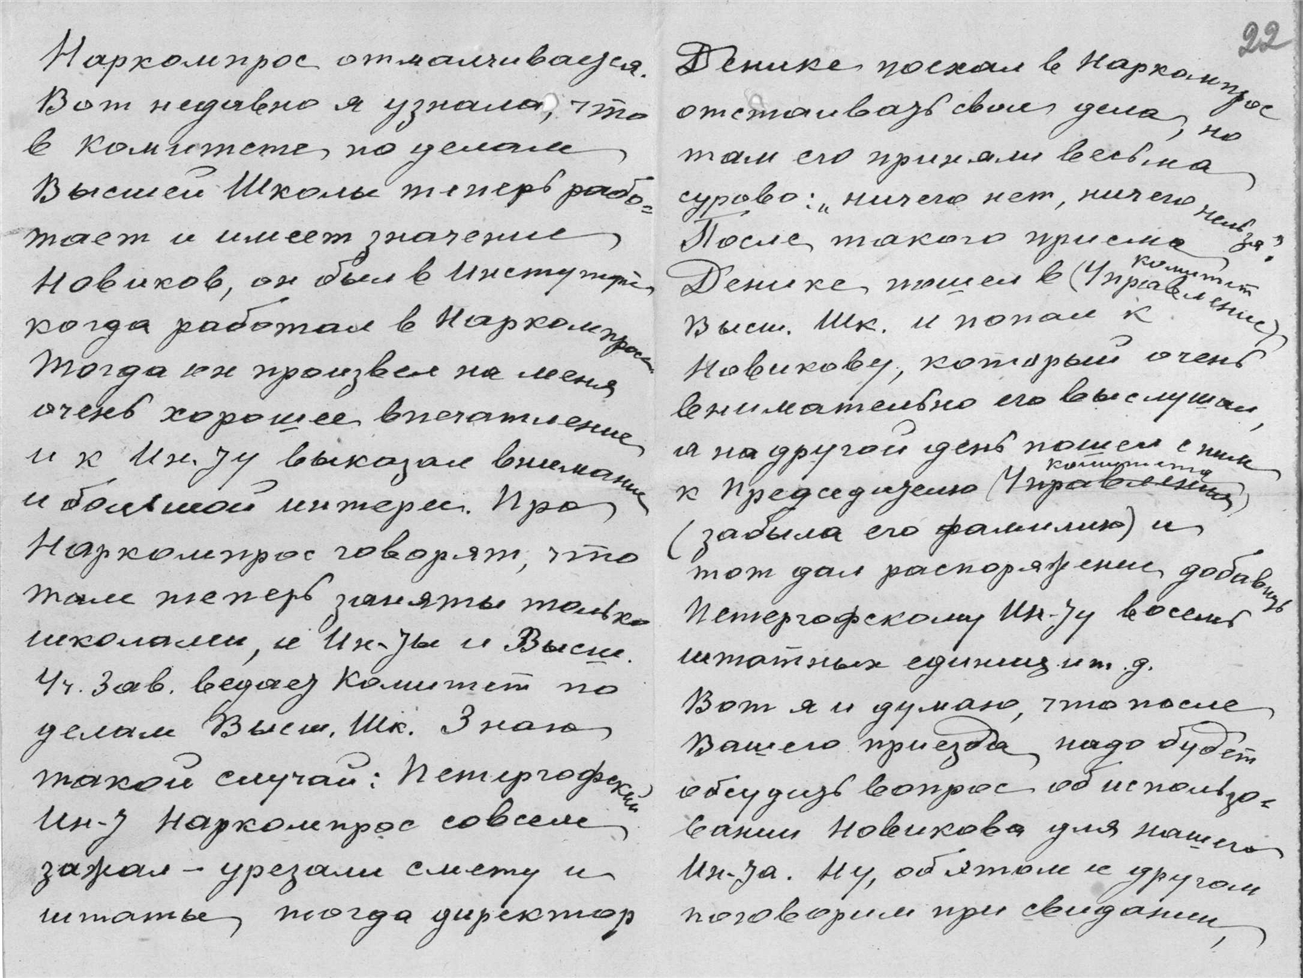 Наркомпрос отмалчивается.
Вот недавно я узнала, что
в комитете по делам
Высшей Школы теперь рабо=
тает и имеет значение
Новиков, он был в Институте,
когда работал в Наркомпросе
Тогда он произвел на меня
очень хорошее впечатление
и к Ин-ту выказал внимание
и большой интерес. Про
Наркомпрос говорят, что
там теперь заняты только
школами, а Ин-ты и Высш.
Уч. Зав. ведает Комитет по
делам Высш. Шк. Знаю
такой случай: Петергофский
Ин-т Наркомпрос совсем
зажал – урезали смету и
штаты, тогда директор
22
Денике поехал в Наркомпрос
отстаивать свои дела, но
там его приняли весьма
сурово: „ничего нет, ничего нельзя".
После такого приема
комитет
Денике пошел в (Управление)
Высш. Шк. и попал к
Новикову, который очень
внимательно его выслушал,
а на другой день пошел с ним
комитета
к Председателю (Управления)
(забыла его фамилию) и
тот дал распоряжение добавить
Петергофскому Ин-ту восемь
штатных единиц и т. д.
Вот я и думаю, что после
Вашего приезда надо будет
обсудить вопрос об использо=
вании Новикова для нашего
Ин-та. Ну, об этом и другом
поговорим при свидании,